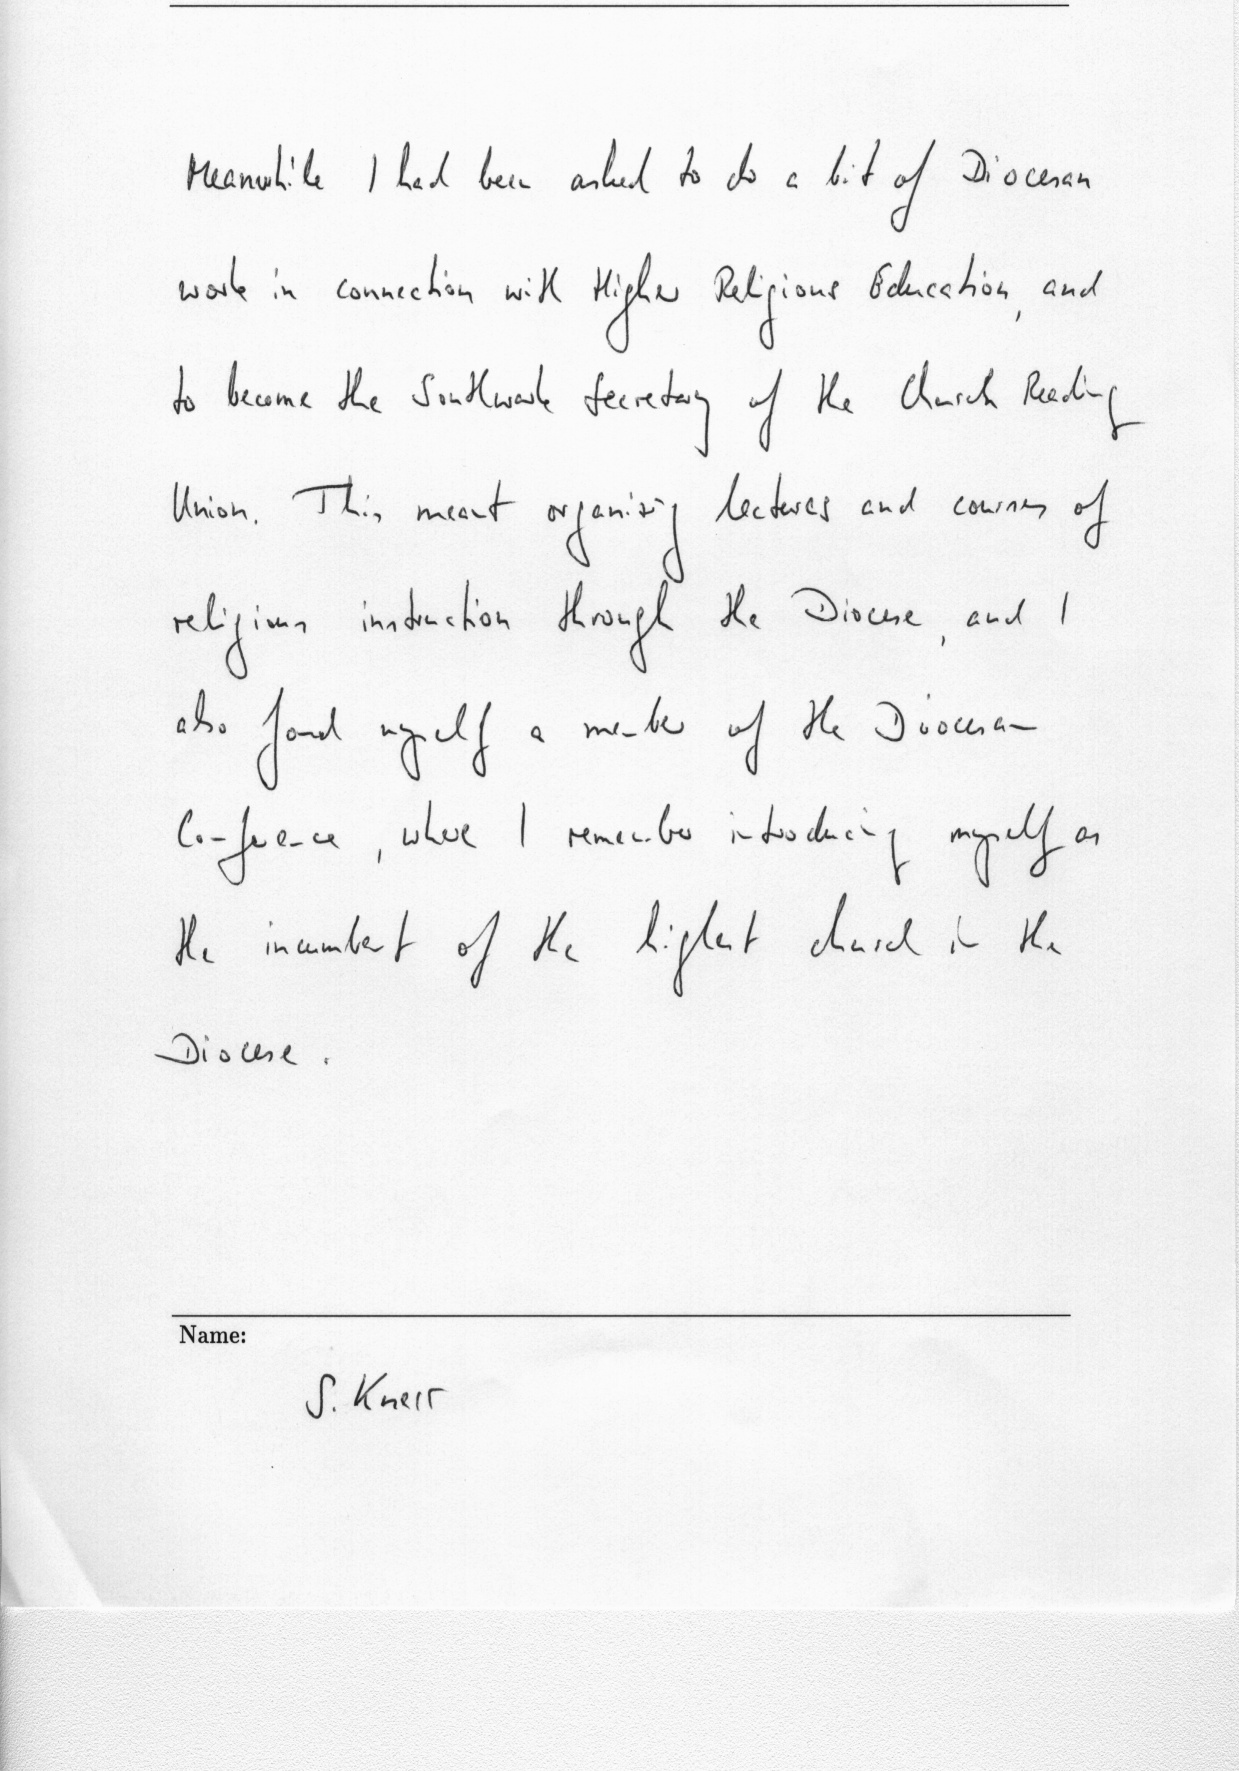 Meanwhile I had been asked to do a bit of Diocesan
work in connection with Higher Religious Education, and
to become the Southwark Secretary of the Church Reading
Union. This meant organising lectures and courses of
religious instruction through the Diocese, and I
also found myself a member of the Diocesan
Conference, where I remember introducing myself as
the incumbent of the highest church in the
Diocese.
Name:
S. Knerr